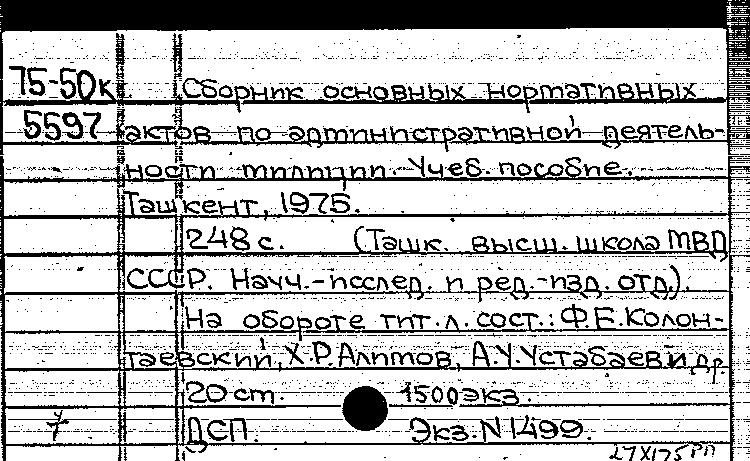 75-50к Сборник основных нормативных
5597 актов по административной деятель-
ности милиции. Учеб. пособие.
Ташкент, 1975.
248 с. (Ташк. высш. школа МВД
СССР. Науч.-исслед. и ред.-изд. отд).
На обороте тит. л. сост.: Ф.Е.Колон-
таевский, Х.Р.Алимов, А.У.Устабаев и др
20 см. 1500 экз.
ДСП. Экз. N 1499.
27X175 РП